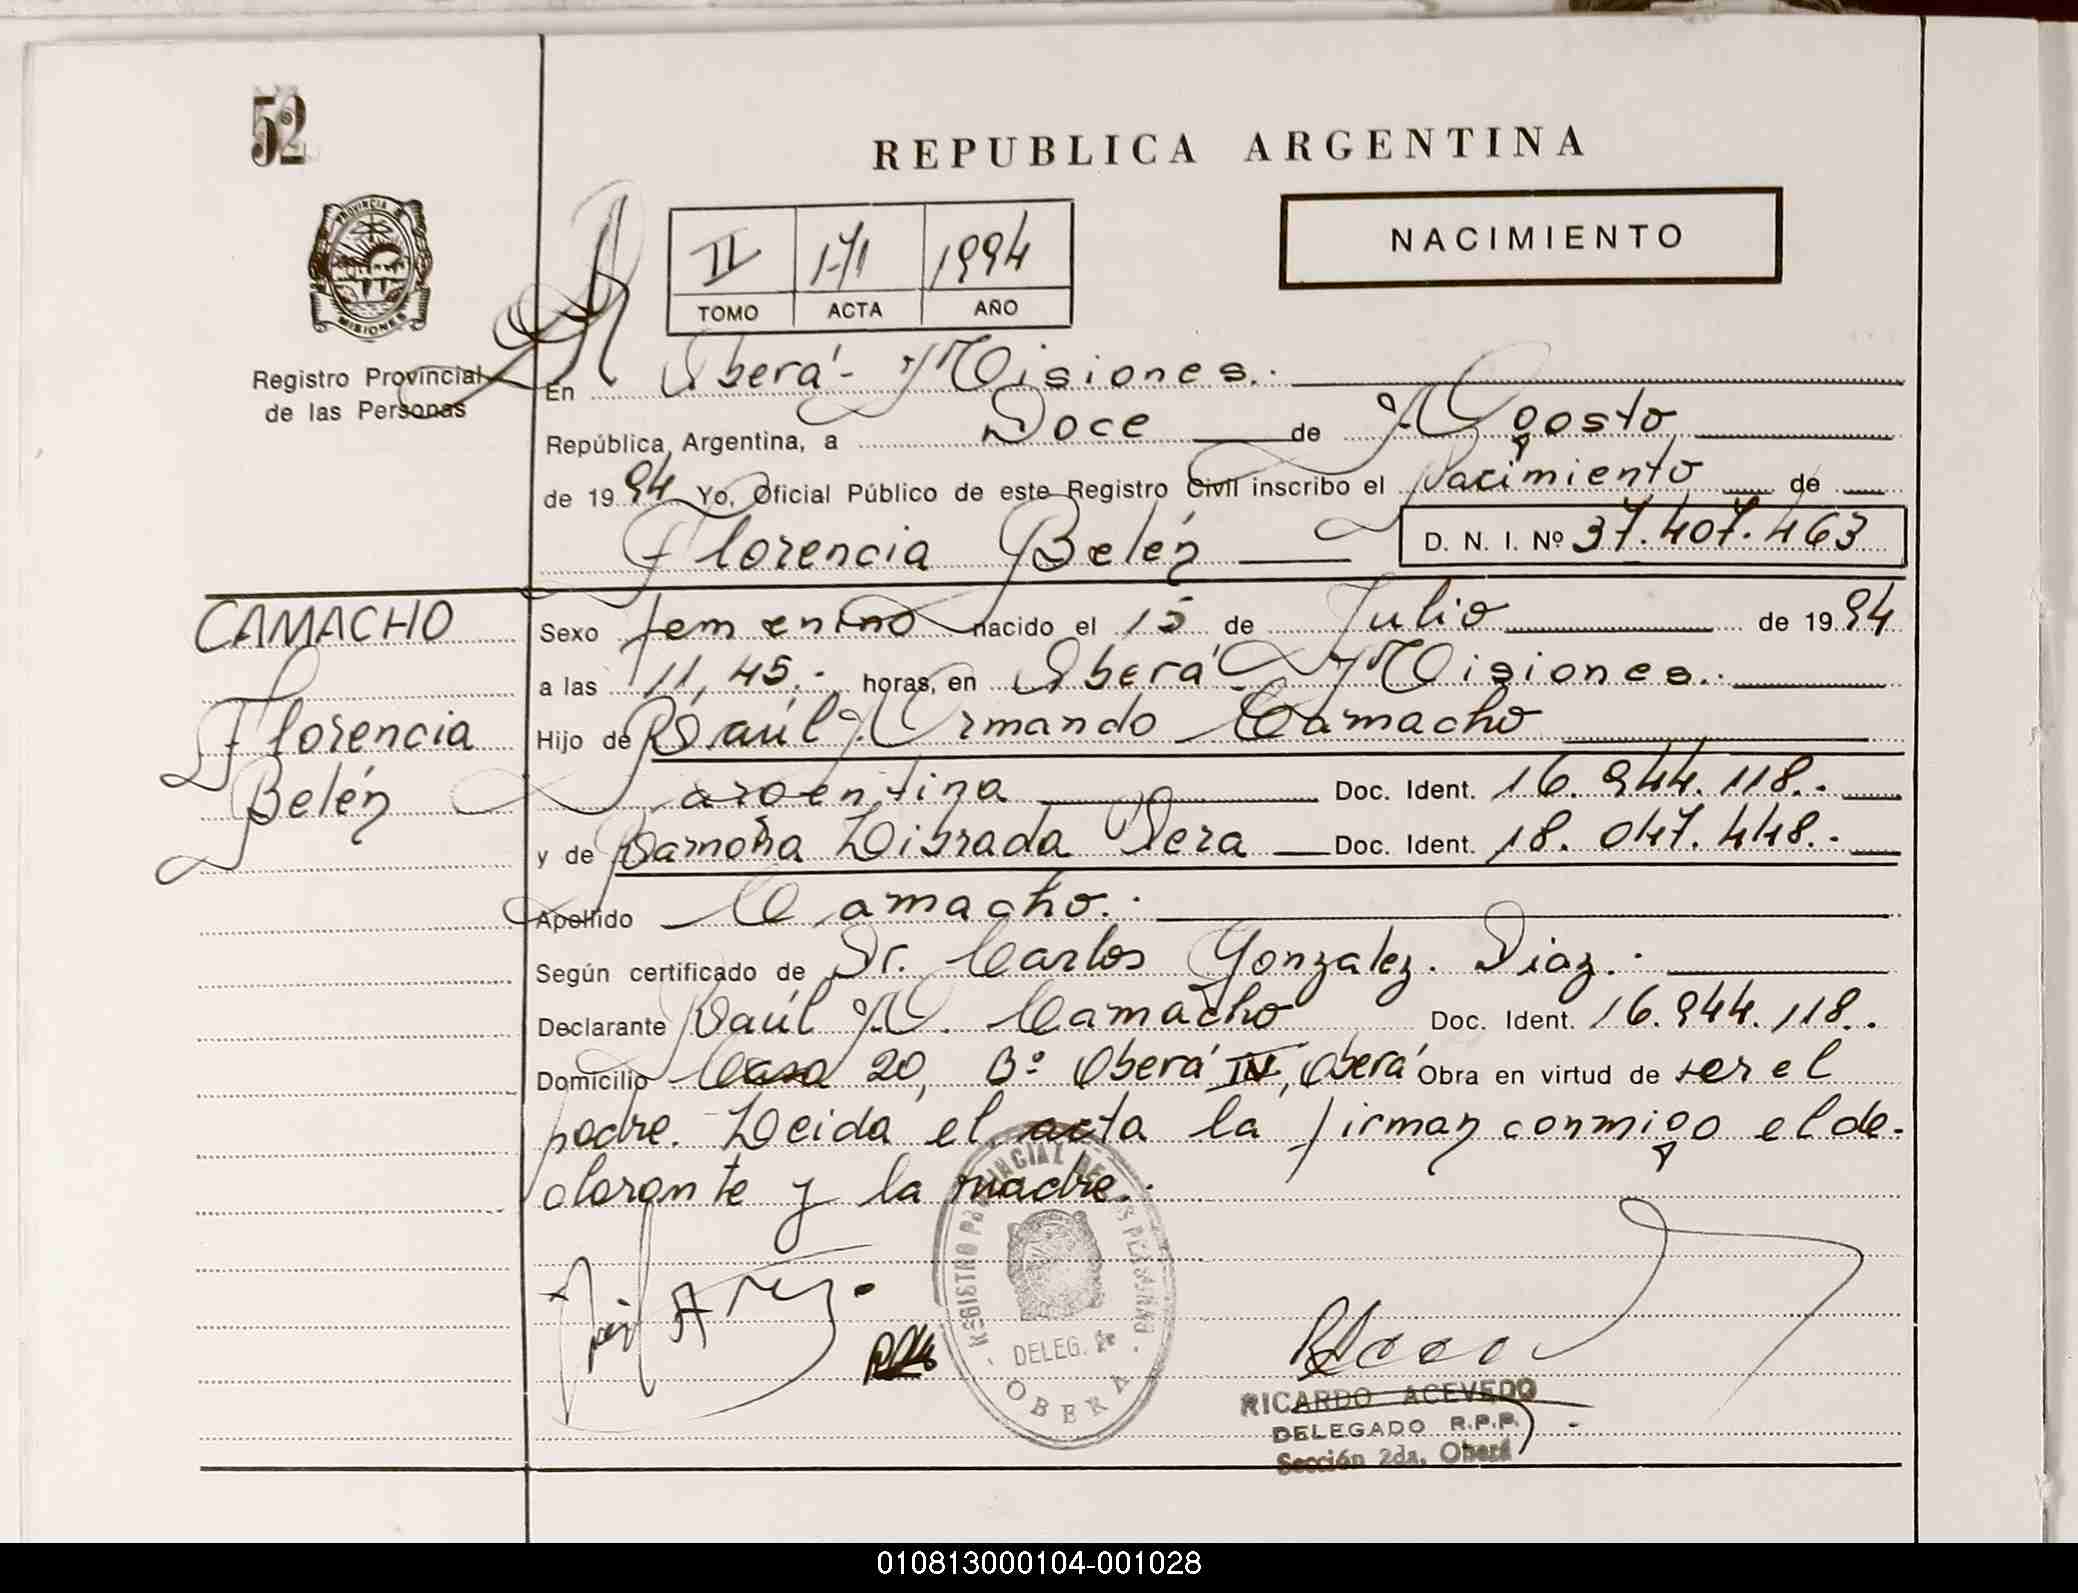 52
REPUBLICA ARGENTINA
PROVINCIA DE
MISIONES
II 171 1994
TOMO ACTA AÑO
NACIMIENTO
Registro Provincial
de las Personas
En Oberá - Misiones.-
República Argentina, a Doce de Agosto
de 1994 Yo, Oficial Público de este Registro Civil inscribo el Nacimiento de
Florencia Belén D. N. I. Nº 37.407.463
CAMACHO
Florencia
Belén
Sexo femenino nacido el 15 de Julio de 1994
a las 11,45.- horas, en Oberá Misiones.-
Hijo de Raúl Armando Camacho
argentina Doc. Ident. 16.944.118.-
y de Ramona Librada Vera Doc. Ident. 18.047.448.-
Apellido Camacho.-
Según certificado de Dr. Carlos Gonzalez Diaz.-
Declarante Raúl A. Camacho Doc. Ident. 16.944.118.-
Domicilio Casa 20, Bº Oberá IV, Oberá Obra en virtud de ser el
padre. Leida el acta la firman conmigo el de-
clarante y la madre.-
REGISTRO PROVINCIAL DE LAS PERSONAS
DELEG. 2ª
OBERA
RICARDO ACEVEDO
DELEGADO R.P.P.
Sección 2da, Oberá
010813000104-001028